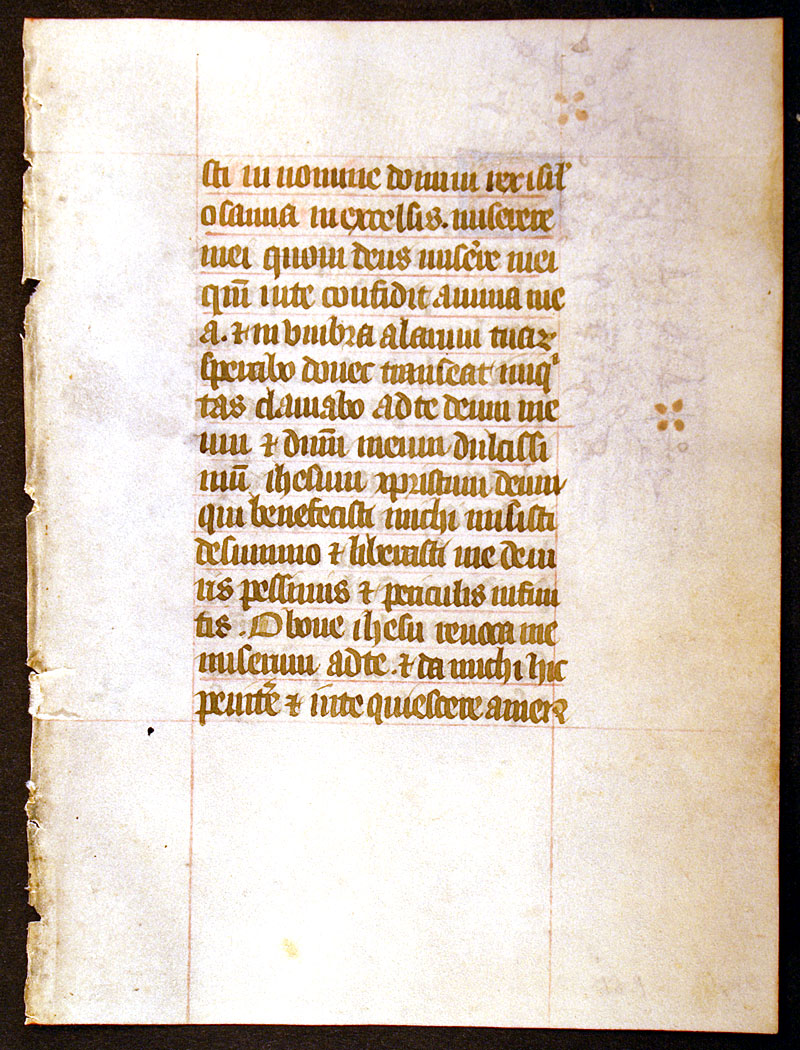 sti in nomine domini rex isrl'
osanna in excelsis. miserere
mei quoin deus miser̄e mei
qm̄ in te confidit anima me
a. ⁊ in vmbra alarum tuaꝝ
sperabo donec transeat iniqͥ
tas clamabo ad te deum me
um ⁊ dn̄m meum dulcissi
mū ihesum xpristum deum
qui benefecisti michi misisti
de summo ⁊ liberasti me de iu
ris pessimis ⁊ periculis infini
tis. O bone ihesu reuoca me
miserum ad te. ⁊ da michi hic
penitr̄e ⁊ in te quiescere amen